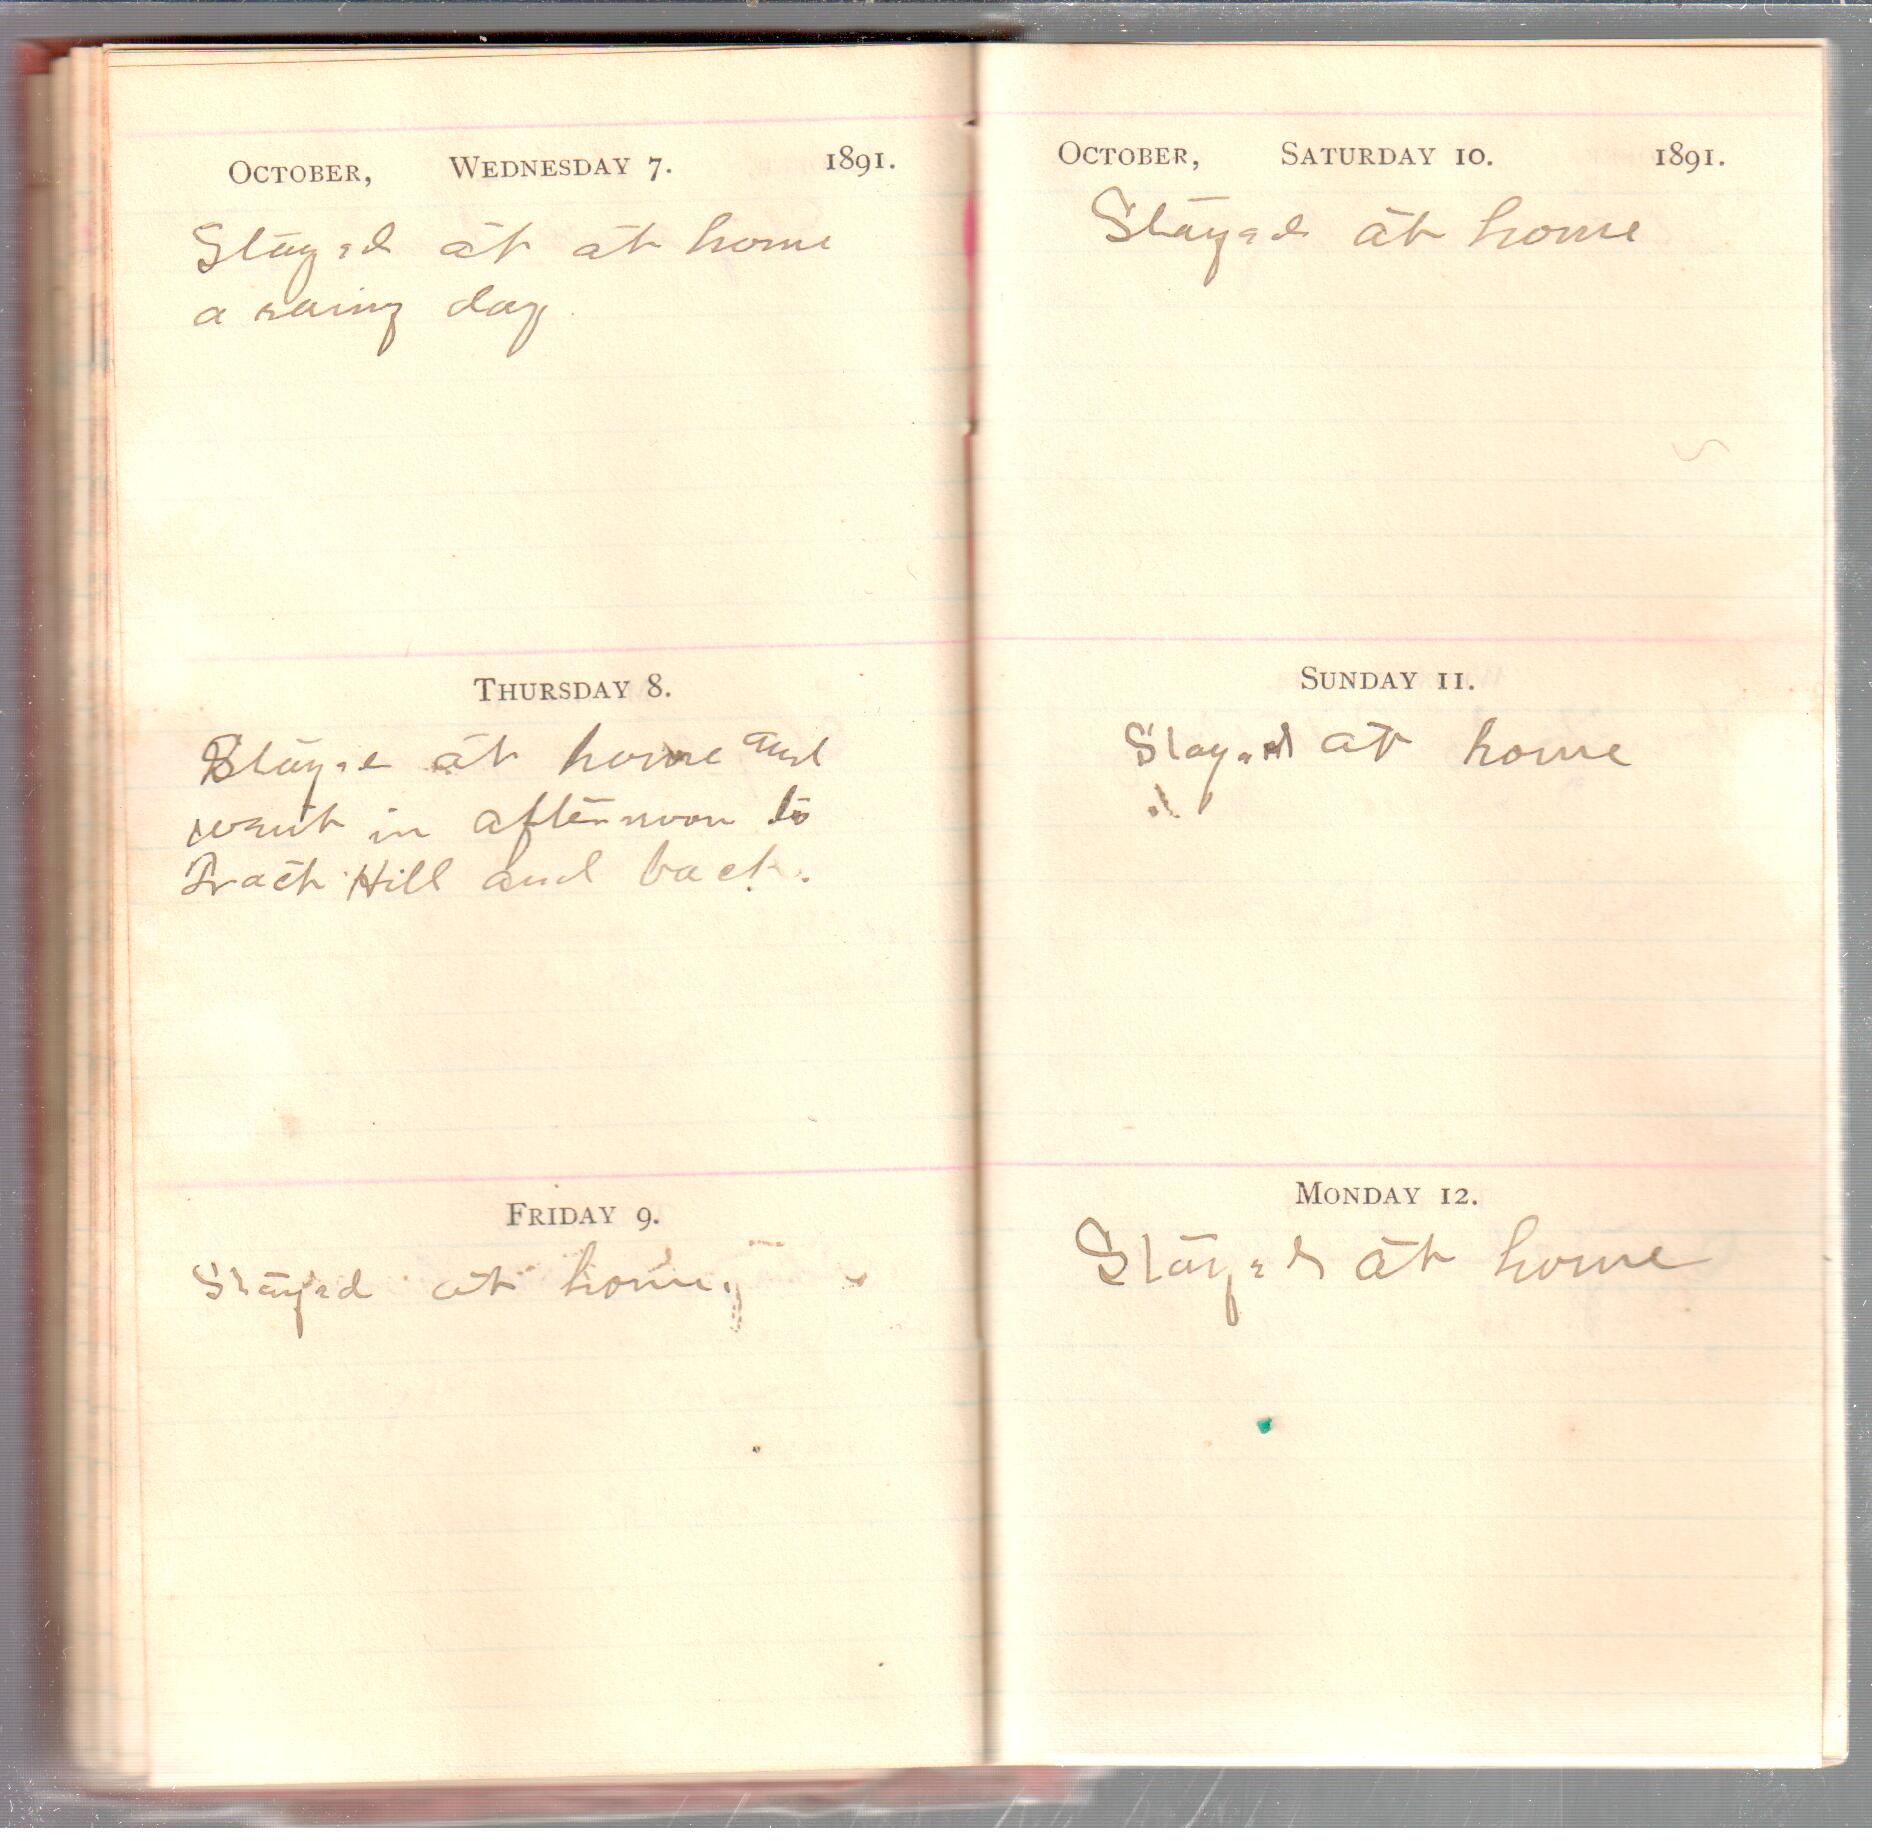 OCTOBER, WEDNESDAY 7. 1891.
Stayed at at home
a rainy day
THURSDAY 8.
Stayed at home and
went in afternoon to
Hill and back.
FRIDAY 9.
Stayed at home
OCTOBER, SATURDAY 10. 1891.
Stayed at home
SUNDAY 11.
Stayed at home
MONDAY 12.
Stayed at home